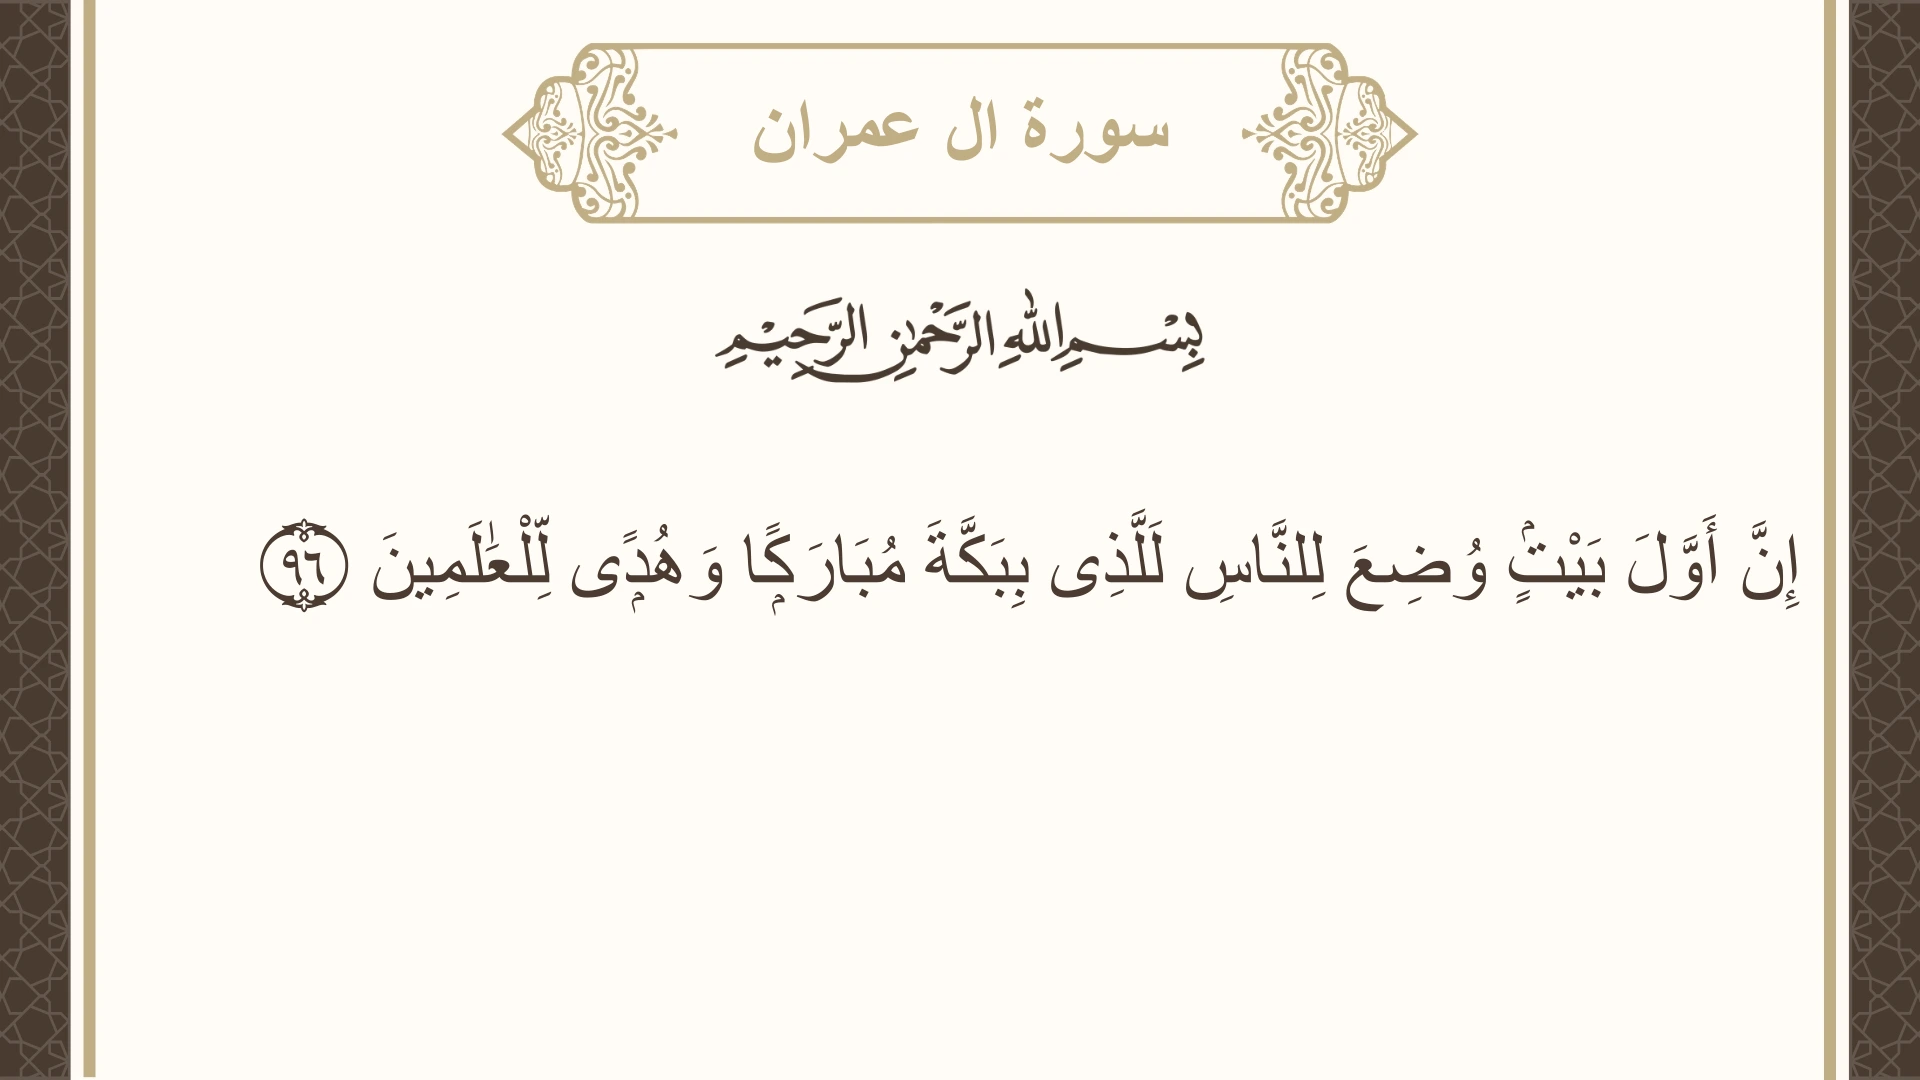 سورة ال عمران
بِسْمِ اللهِ الرَّحْمٰنِ الرَّحِيْمِ
إِنَّ أَوَّلَ بَيْتٍۢ وُضِعَ لِلنَّاسِ لَلَّذِى بِبَكَّةَ مُبَارَكًۭا وَ هُدًۭى لِّلْعَٰلَمِينَ ۝٩٦